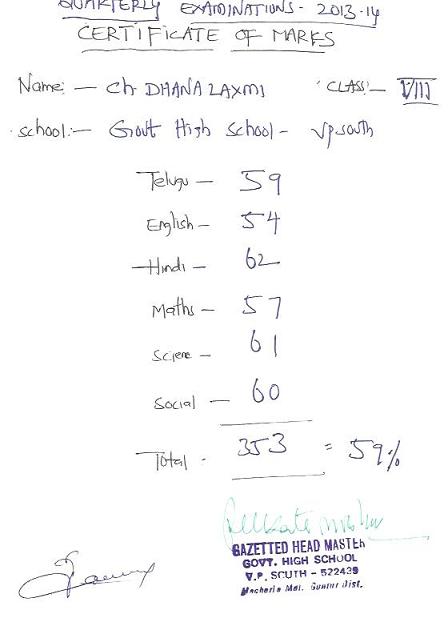 QUARTERLY EXAMINATIONS - 2013-14
CERTIFICATE OF MARKS
Name: - Ch DHANA LAXMI CLASS: - VIII
School: - Govt High School - Vpsouth
Telugu - 59
English - 54
Hindi - 62
Maths - 57
Sciene - 61
Social - 60
Total - 353 = 59%
GAZETTED HEAD MASTER
GOVT. HIGH SCHOOL
V.P. SOUTH - 522439
Macherla Mdl. Guntur Dist.